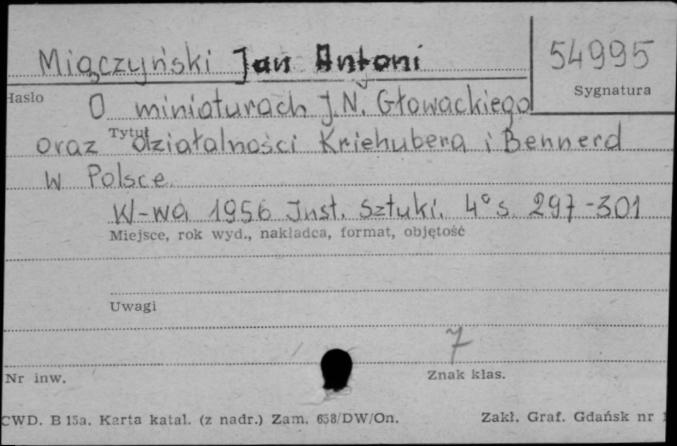 Miączyński Jan Antoni
54995
Hasło
Sygnatura
O miniaturach J.N. Głowackiego
Tytuł
oraz działalności Kriehubera i Bennerd
w Polsce.
W-wa 1956 Inst. Sztuki. 4° s. 297-301
Miejsce, rok wyd., nakładca, format, objętość
Uwagi
7
Nr inw.
Znak klas.
CWD. B 15a. Karta katal. (z nadr.) Zam. 658/DW/On.
Zakł. Graf. Gdańsk nr 1